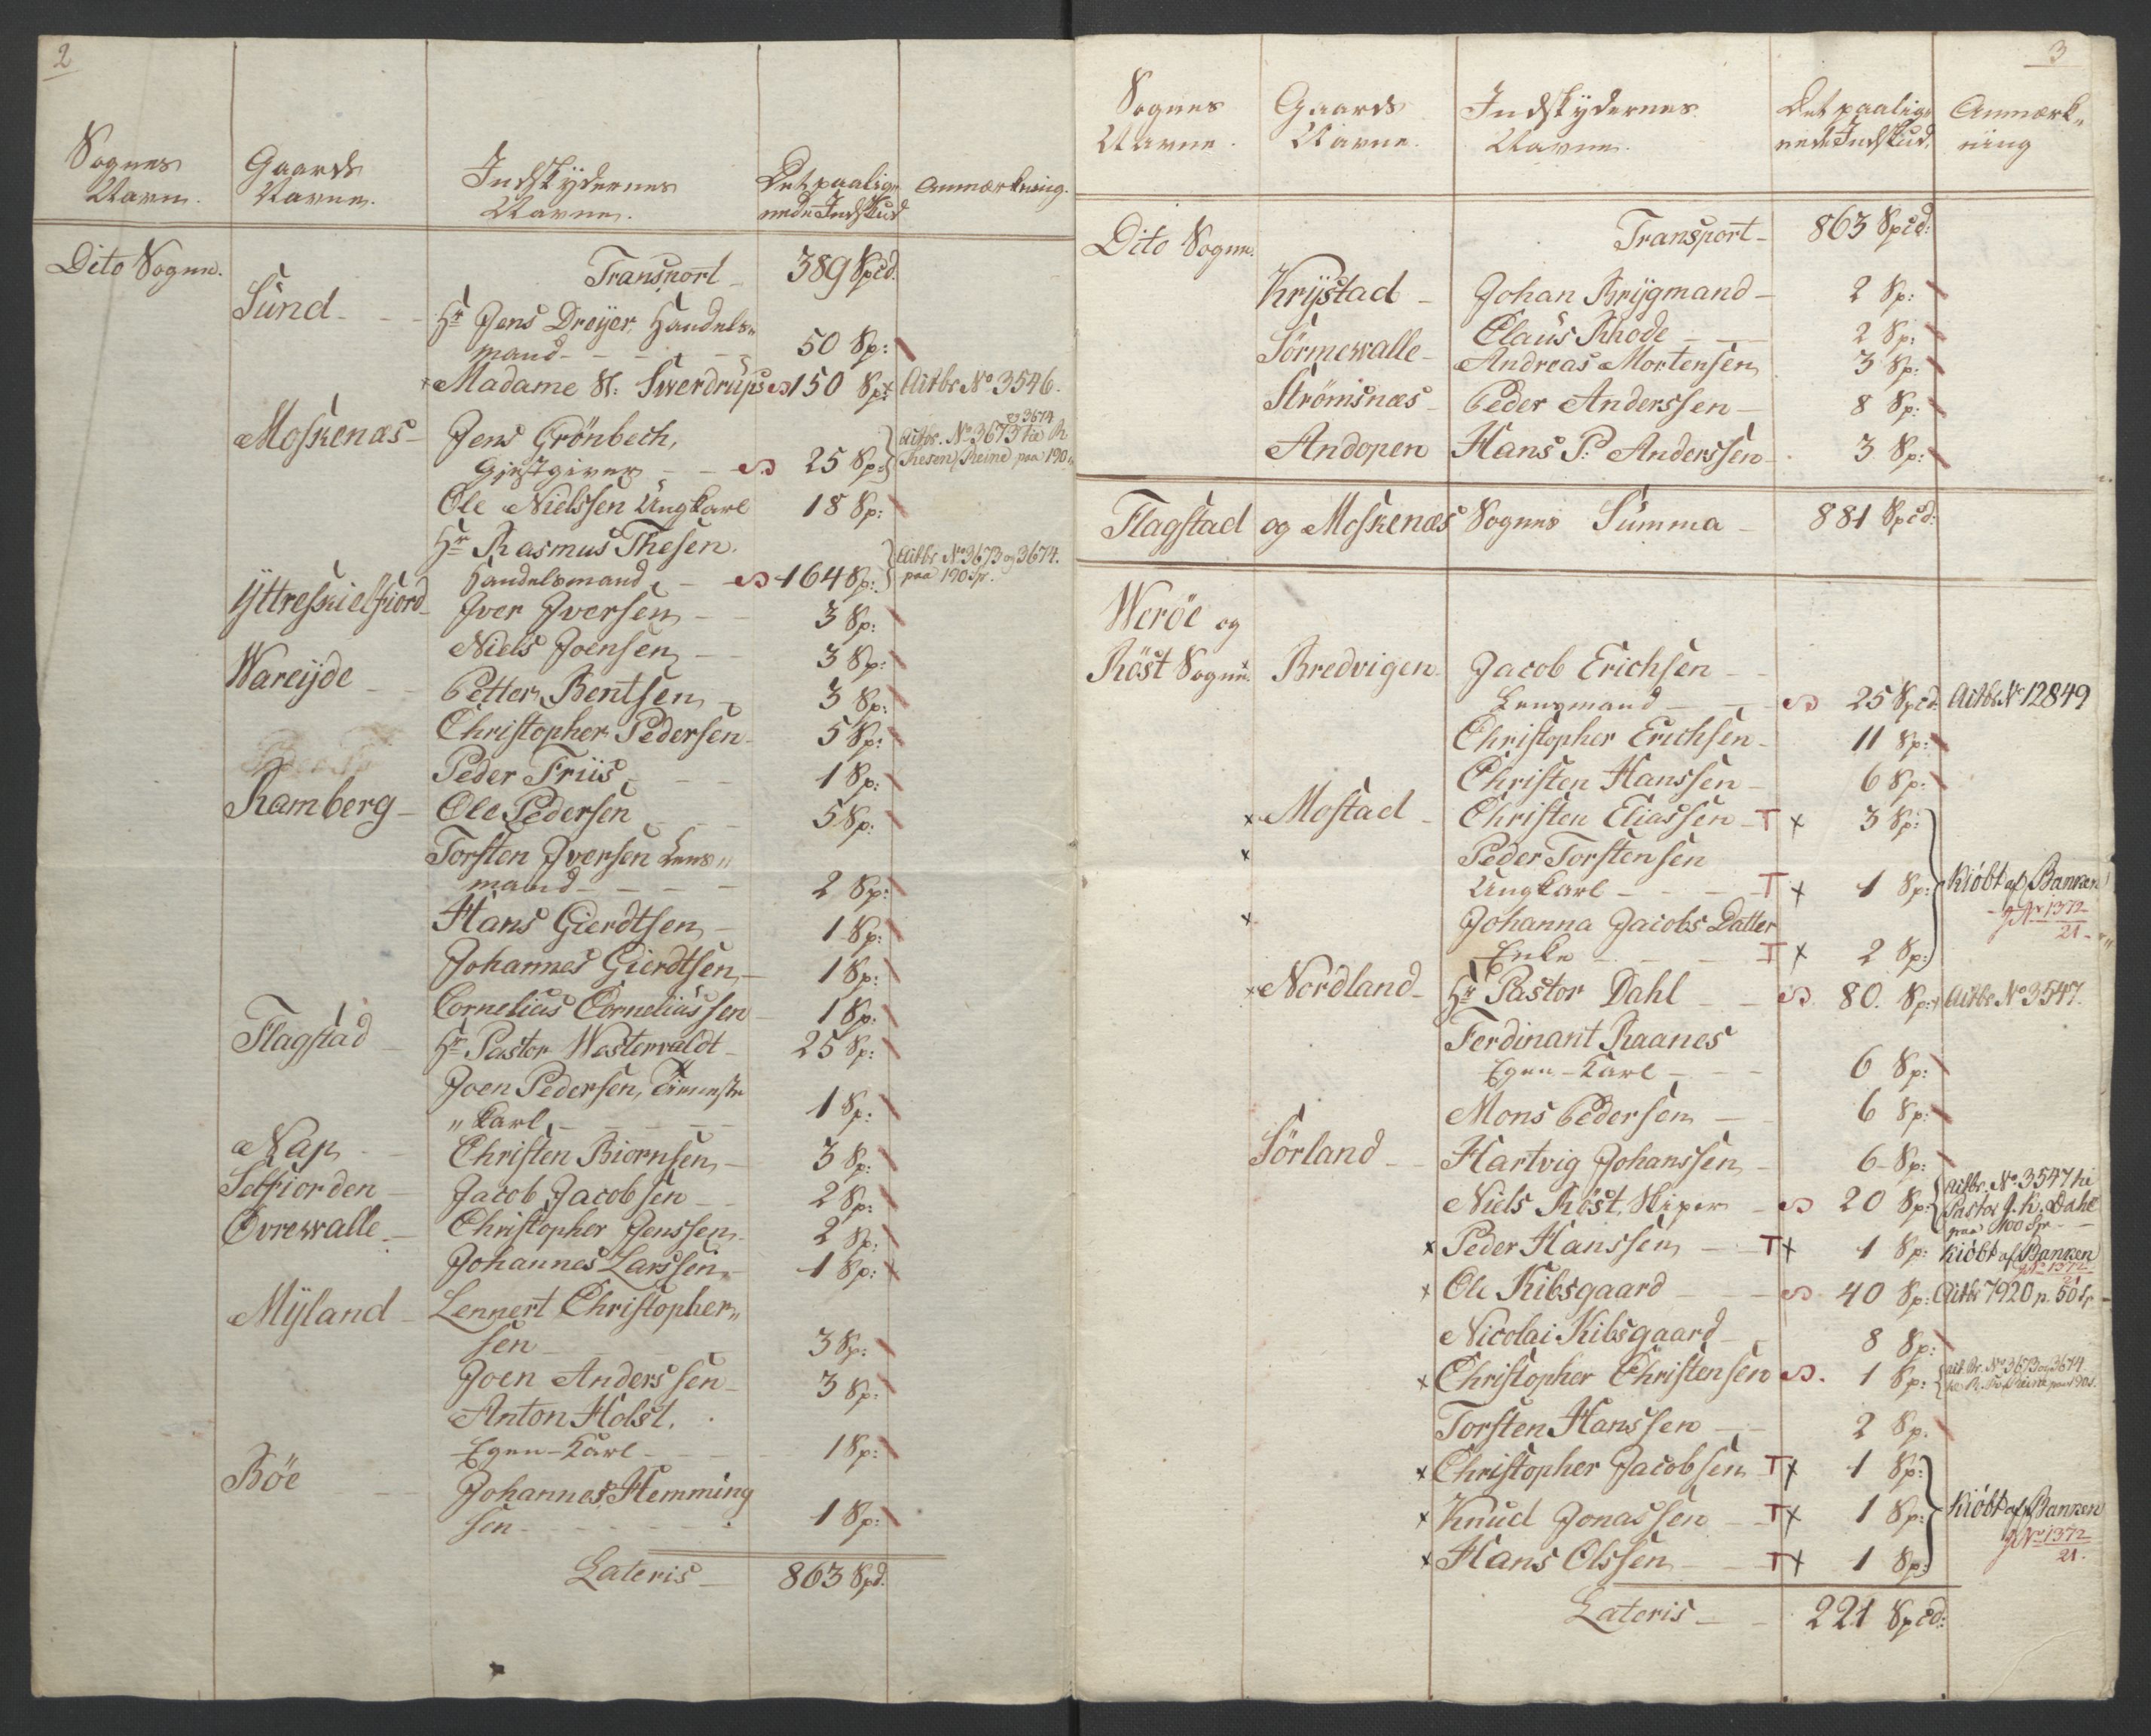 2
Sognes Navne. Gaards Navne. Indskydernes Navne. Det paalignede Indskud Anmærkning.
Dito Sogne. Transport 389 Spcd.
Sund Hr Jens Dreyer, Handels„
mand 50 Sp:
× Madame Sl: Swerdrups 150 Sp: Actbr No 3546.
Moskenæs Jens Grönbech,
Giestgiver 25 Sp: Actbr. No 3673 og 3674 hr R Thesen, Reine paa 190
Ole Nielssen Ungkarl 18 Sp:
Hr Rasmus Thesen.
Handelsmand 164 Sp: Actbr No 3673 og 3674. paa 190 Sp.
Yttreskielfiord Iver Iversen 3 Sp:
Niels Joensen 3 Sp:
Wareijde Petter Bentsen 3 Sp:
Christopher Pedersen 5 Sp:
Peder Friis 1 Sp:
Ramberg Ole Pedersen 5 Sp:
Torsten Iversen Lens„
mand 2 Sp:
Hans Gierdtsen 1 Sp:
Johannes Gierdtsen 1 Sp:
Cornelius Corneliussen 1 Sp:
Flagstad Hr Pastor Westervaldt 25 Sp:
Joen Pedersen, Tieneste
„karl 1 Sp:
Nap Christen Biornsen 3 Sp:
Selfiorden Jacob Jacobsen 2 Sp:
Øvrewalle Christopher Jenssen 2 Sp:
Johannes Larssen 1 Sp:
Myland Lennert Christopher„
sen 3 Sp:
Joen Anderssen 3 Sp:
Anton Holst.
Egen-Karl 1 Sp:
Böe Johannes Hemming
sen 1 Sp:
Lateris 863 Spd.
3
Sognes Navne. Gaards Navne. Indskydernes Navne. Det paalignede Indskud. Anmærk„ning
Dito Sogne. Transport 863 Spcd:
Krystad Johan Brygmand 2 Sp:
Claus Rhode 2 Sp:
Sörmewalle Andreas Mortensen 3 Sp:
Strömsnæs Peder Anderssen 8 Sp:
Andopen Hans P. Anderssen 3 Sp:
Flagstad og Moskenæs Sognes Summa 881 Spcd:
Weröe og
Röst Sogne. Bredvigen Jacob Erichsen
Lensmand 25 Spcd Actbr No 12849
Christopher Erichsen 11 Sp:
Christen Hanssen 6 Sp:
× Mostad Christen Eliassen T × 3 Sp:
× Peder Torstensen
Ungkarl T × 1 Sp: Kiöbt af Banken No 1372 21
× Johanna Jacobs Datter
Enke T × 2 Sp:
× Nordland Hr Pastor Dahl 80. Sp: Actbr No 3547.
Ferdinant Raanes
Egen-Karl 6 Sp:
Mons Pedersen 6 Sp:
Sörland Hartvig Johanssen 6 Sp:
Niels Röst, Skiper 20 Sp: Actbr. No 3547 hr Pastor J. K. Dahl paa 100 Sp
× Peder Hanssen T × 1 Sp: Kiöbt af Banken No 1372 21
× Ole Kibsgaard 40 Sp: Actbr 7920 p. 50 Sp
Nicolai Kibsgaard 8 Sp:
× Christopher Christensen 1 Sp: Act Br. No 3673 og 3674
Torsten Hanssen 2 Sp.
× Christopher Jacobsen T × 1 Sp:
× Knud Jonassen T × 1 Sp: Kiöbt af Banken No 1372 21.
× Hans Olssen T × 1 Sp:
Lateris 221 Spcd: